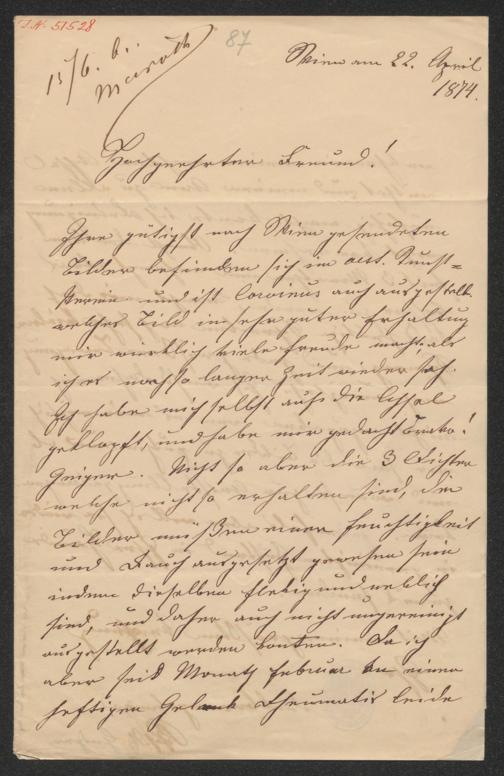 J.N. 51528
87
15/6. b.
Wien am 22. April
1874.
Hochgeehrter Freund!
Ihre gütigst nach Wien gesendeten
Bilder befinden sich im oest. Kunst=
Verein und ist Corvinus auch ausgestellt.
welches Bild in sehr guter Erhaltung
mir wirklich viele Freude macht, als
ich es nach so langer Zeit wieder sah.
Ich habe mich selbst auf die Achsel
geklopft, und habe mir gedacht Bravo!
Geiger. Nicht so aber die 3 Dichter
welche nicht so erhalten sind, die
Bilder müßen einer Feuchtigkeit
und Rauch ausgesetzt gewesen sein
indem dieselben fleckig und neblich
sind, und daher auch nicht ungereinigt
ausgestellt werden konten. Da ich
aber seit Monath Februar an einen
heftigen Gelenk Rheumatis leide